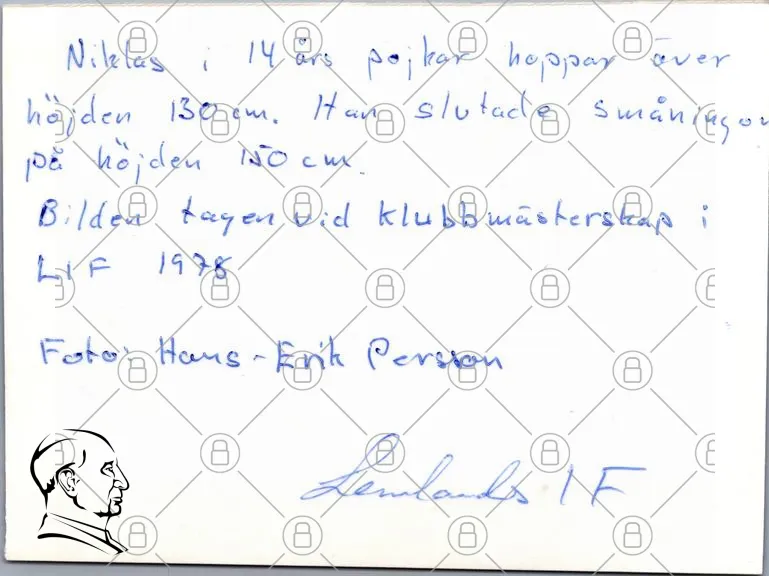 Niklas i 14 års pojkar hoppar över
höjden 130 cm. Han slutade småningom
på höjden 150 cm.
Bilden tagen vid klubbmästerskap i
LIF 1978
Foto: Hans-Erik Persson
Lemlands IF